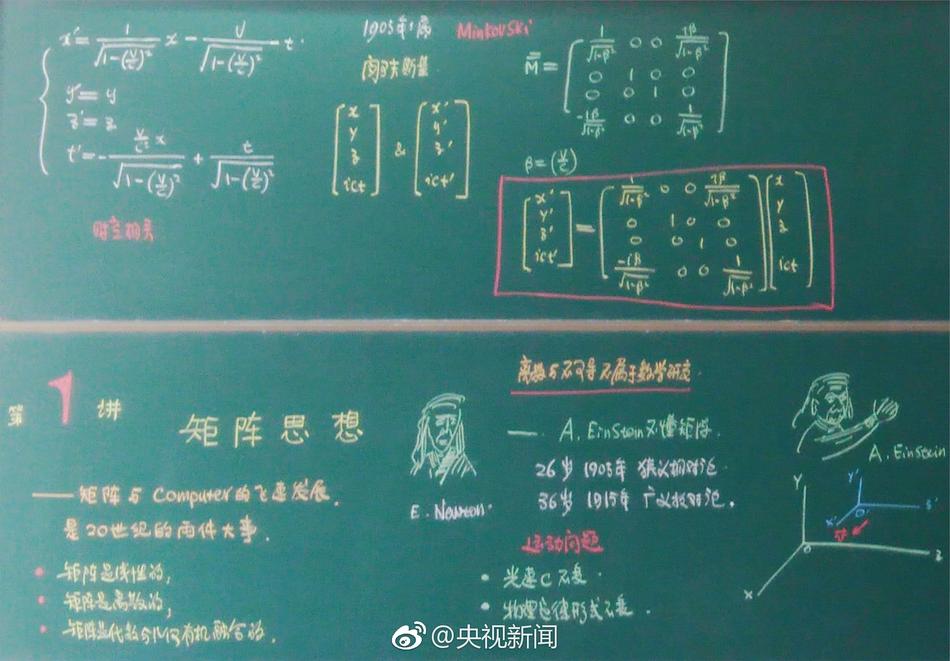 x' = 1/√(1-(V/C)²) x - V/√(1-(V/C)²) t
y' = y
z' = z
t' = - (V/C² x)/√(1-(V/C)²) + t/√(1-(V/C)²)
时空相关
1905年
Minkovski
闵可夫斯基
[x y z ict] & [x' y' z' ict']
M =
1/√(1-β²) 0 0 iβ/√(1-β²)
0 1 0 0
0 0 1 0
-iβ/√(1-β²) 0 0 1/√(1-β²)
β = (V/C)
[x' y' z' ict'] =
1/√(1-β²) 0 0 iβ/√(1-β²)
0 1 0 0
0 0 1 0
-iβ/√(1-β²) 0 0 1/√(1-β²)
[x y z ict]
第1讲
矩阵思想
— 矩阵与Computer的飞速发展
是20世纪的两件大事.
• 矩阵是线性的;
• 矩阵是离散的;
• 矩阵是代数与几何有机融合的.
E. Newton.
离散与不可导不属于数学研究.
— A. Einstein不懂矩阵.
26岁 1905年 狭义相对论.
36岁 1915年 广义相对论.
运动问题
• 光速C不变.
• 物理定律形式不变.
A. Einstein
Y
Y'
X'
O'
O
Z
X
@央视新闻